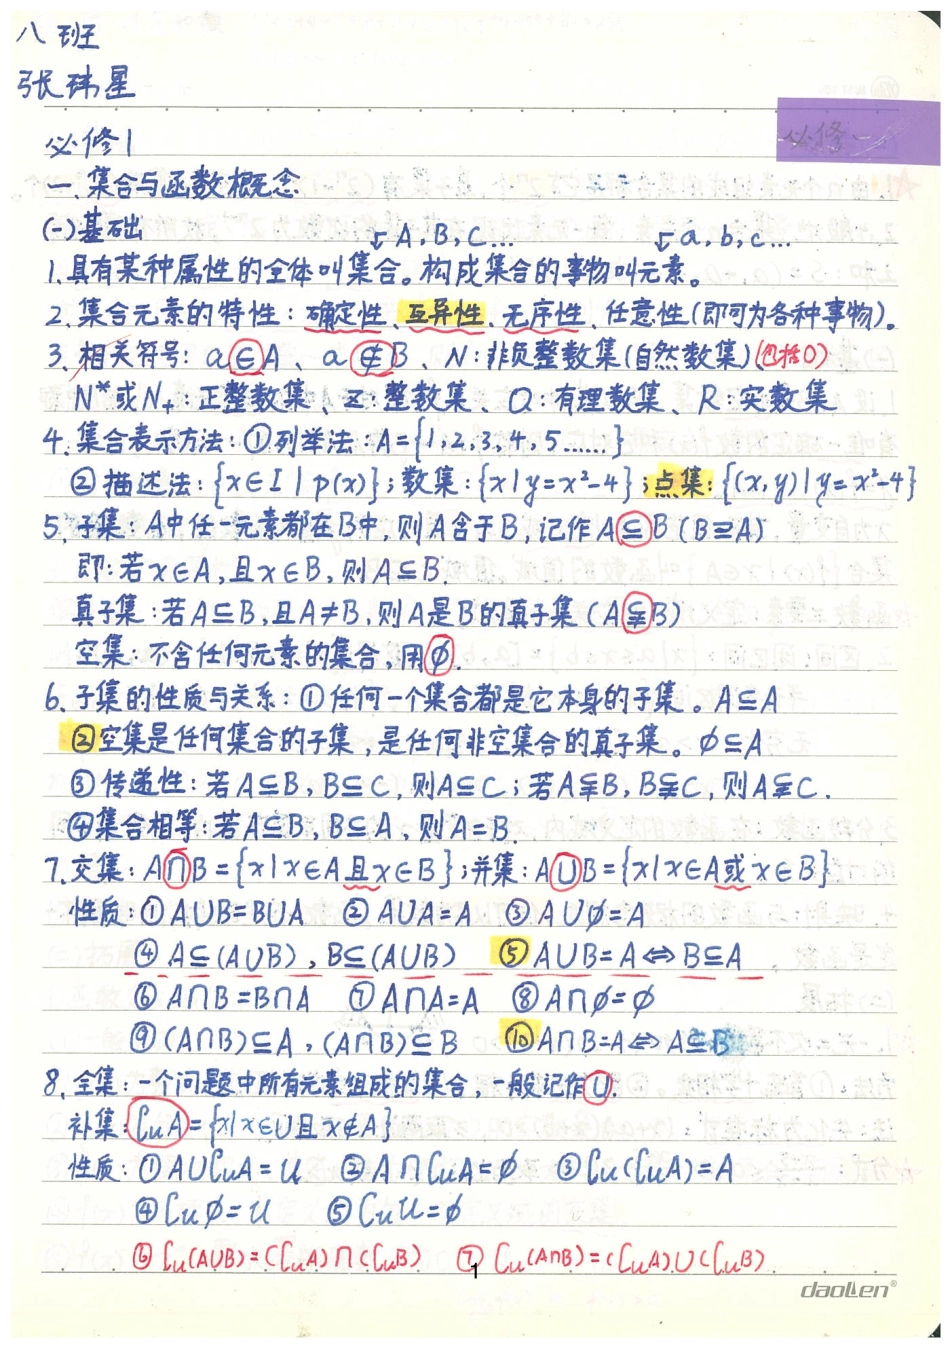 八班
张玮星
必修1
必修一
一.集合与函数概念
(一)基础
A,B,C... a,b,c...
1.具有某种属性的全体叫集合。构成集合的事物叫元素。
2.集合元素的特性:确定性、互异性、无序性、任意性(即可为各种事物)。
3.相关符号:a∈A、a∉B、N:非负整数集(自然数集)(包括0)
N*或N₊:正整数集、Z:整数集、Q:有理数集、R:实数集
4.集合表示方法:①列举法:A={1,2,3,4,5……}
②描述法:{x∈I|p(x)};数集:{x|y=x²-4};点集:{(x,y)|y=x²-4}
5.子集:A中任一元素都在B中,则A含于B,记作A⊆B(B⊇A)
即:若x∈A,且x∈B,则A⊆B.
真子集:若A⊆B,且A≠B,则A是B的真子集(A⫋B)
空集:不含任何元素的集合,用∅.
6.子集的性质与关系:①任何一个集合都是它本身的子集。A⊆A
②空集是任何集合的子集,是任何非空集合的真子集。∅⊆A
③传递性:若A⊆B,B⊆C,则A⊆C;若A⫋B,B⫋C,则A⫋C.
④集合相等:若A⊆B,B⊆A,则A=B.
7.交集:A∩B={x|x∈A且x∈B};并集:A∪B={x|x∈A或x∈B}
性质:①A∪B=B∪A ②A∪A=A ③A∪∅=A
④A⊆(A∪B),B⊆(A∪B) ⑤A∪B=A⇔B⊆A
⑥A∩B=B∩A ⑦A∩A=A ⑧A∩∅=∅
⑨(A∩B)⊆A,(A∩B)⊆B ⑩A∩B=A⇔A⊆B
8.全集:一个问题中所有元素组成的集合,一般记作U.
补集:∁uA={x|x∈U且x∉A}
性质:①A∪∁uA=U ②A∩∁uA=∅ ③∁u(∁uA)=A
④∁u∅=U ⑤∁uU=∅
⑥∁u(A∪B)=(∁uA)∩(∁uB) ⑦∁u(A∩B)=(∁uA)∪(∁uB)
1
daoLen®